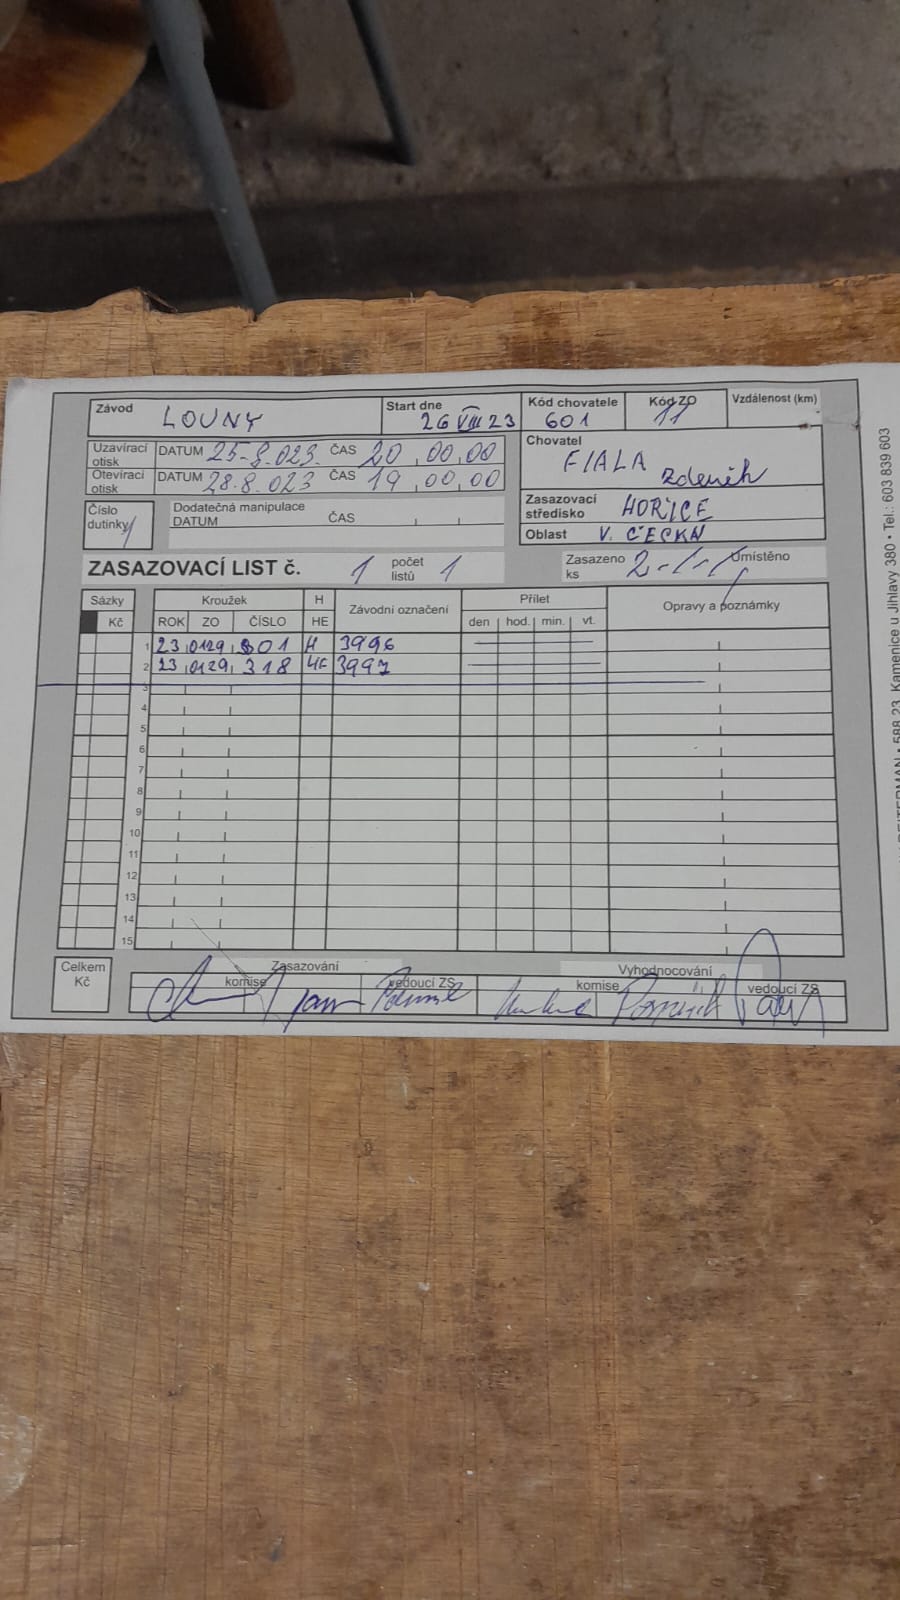 Závod LOUNY Start dne 26 VIII 23 Kód chovatele 601 Kód ZO 11 Vzdálenost (km)
Uzavírací otisk DATUM 25-8.023. ČAS 20,00,00
Otevírací otisk DATUM 28.8.023 ČAS 19,00,00
Chovatel FIALA Zdeněk
Číslo dutinky 1 Dodatečná manipulace DATUM ČAS
Zasazovací středisko HOŘICE
Oblast V. ČECHY
ZASAZOVACÍ LIST č. 1 počet listů 1 Zasazeno ks 2 Umístěno
Sázky Kroužek H Závodní označení Přílet Opravy a poznámky
Kč ROK ZO ČÍSLO HE den hod. min. vt.
1 23 0129 301 H 3996
2 23 0129 318 HE 3997
3
4
5
6
7
8
9
10
11
12
13
14
15
Celkem Kč Zasazování Vyhodnocování
komise vedoucí ZS komise vedoucí ZS
588 23 Kamenice u Jihlavy 380 • Tel.: 603 839 603